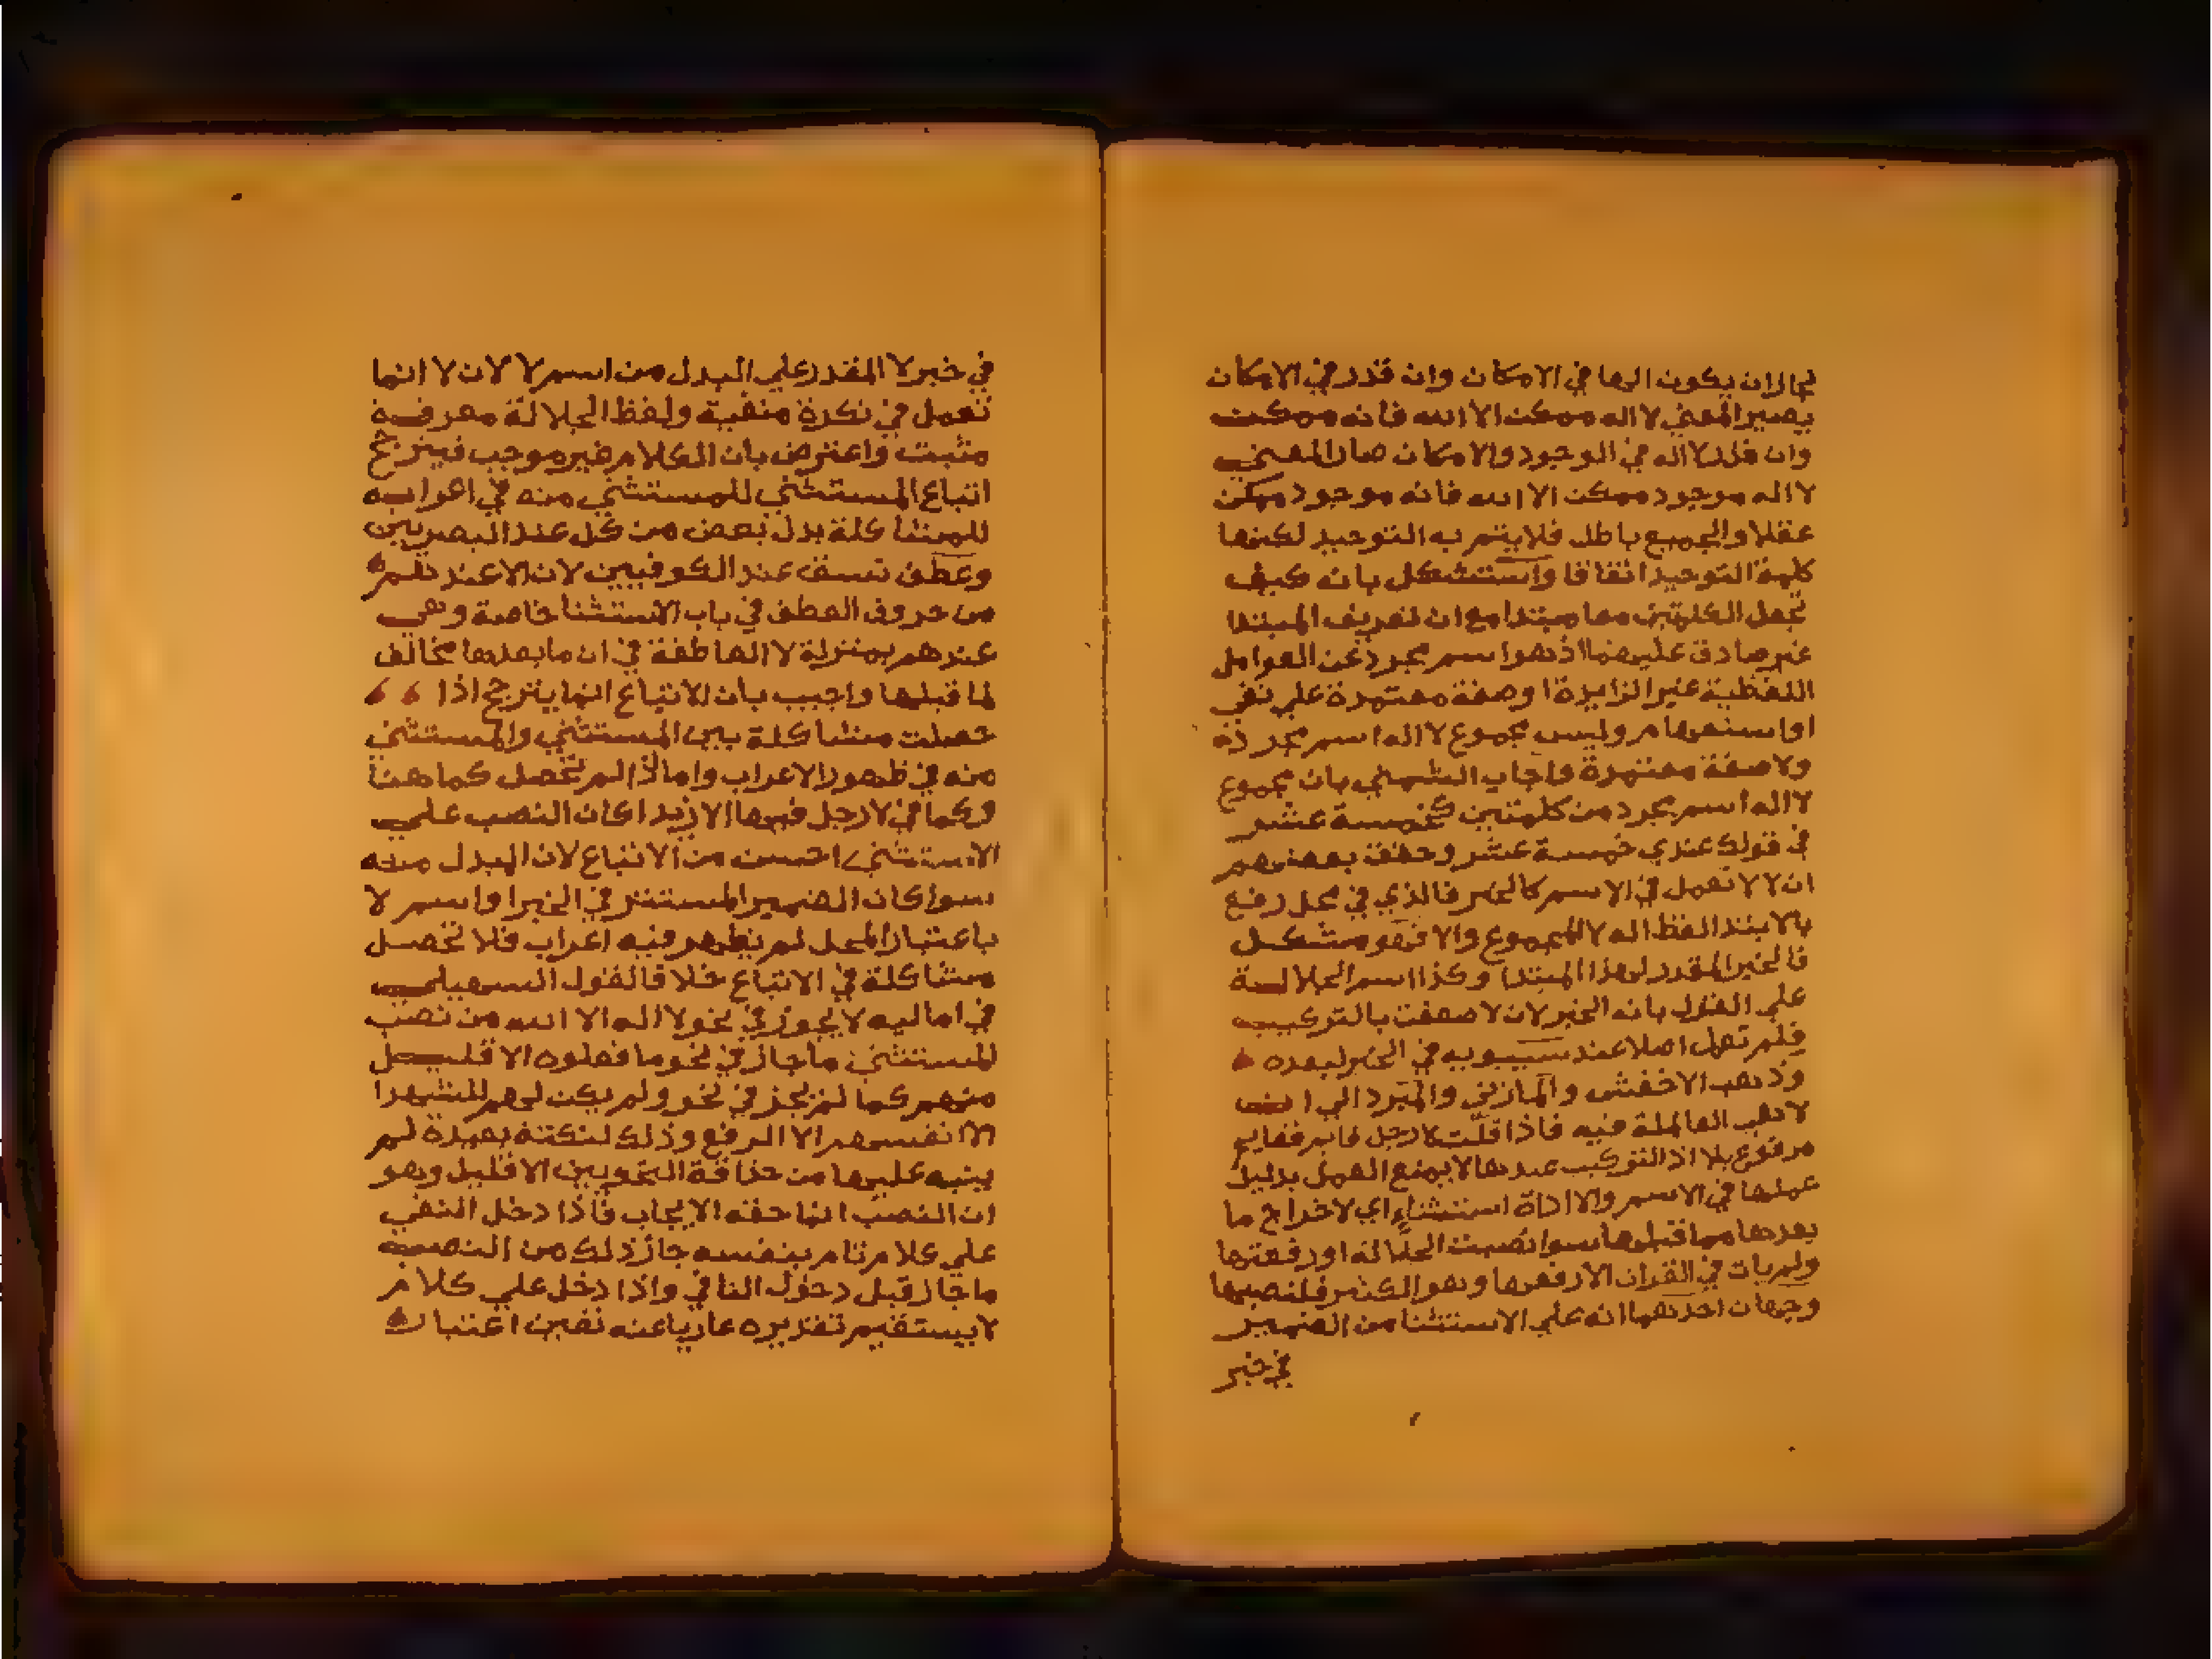 لجازان يكون الها في الامكان وان قدر في الامكان
يصير المعني لا اله ممكن الا الله فانه ممكن
وان قلد لا اله في الوجود والامكان صار المعني
لا اله موجود ممكن الا الله فانه موجود ممكن
عقلا والجميع باطل فلا يتم به التوحيد لكنها
كلمة التوحيد اتفاقا واستشكل بانه كيف
تجعل الكلمتين معا مبتدا مع ان تعريف المبتدا
غير صادق عليهما اذ هو اسم مجرد عن العوامل
اللفظية غير الزايدة او صفة معتمدة علي نفي
او استفهام وليس مجموع لا اله اسم مجرد
ولا صفة معتمدة واجاب الشمني بان مجموع
لا اله اسم مجرد من كلمتين كخمسة عشر
في قولك عندي خمسة عشر وحقق بعضهم
ان لا لا تعمل في الاسم كالخبر فالذي في محل رفع
بالابتدا لفظ اله لا المجموع والا فهو مشكل
فالخبر المقدر لهذا المبتدا وكذا اسم الجلالة
علي القول بانه الخبر لان لا ضعفت بالتركيب
فلم تعمل اصلا عند سيبويه في الخبر لبعده
وذهب الاخفش والمازني والمبرد الي ان
لا هي العاملة فيه فاذا قلت لا رجل قايم فقايم
مرفوع بلا اذ التركيب عندها لا يمنع العمل بدليل
عملها في الاسم والا اداة استثناء اي لاخراج ما
بعدها مما قبلها سوا نصبت الجلالة او رفعتها
ولم يات في القران الا رفعها وهو الكثير فلنصبها
وجهان احدهما انه علي الاستثنا من الضمير
في خبر
في خبر لا المقدر علي البدل من اسم لا لان لا انما
تعمل في نكرة منفية ولفظ الجلالة معرفة
مثبت واعترض بان الكلام غير موجب فيترجح
اتباع المستثني للمستثني منه في اعرابه
للمشاكلة بدل بعض من كل عند البصريين
وعطف نسق عند الكوفيين لان الا عندهم
من حروف العطف في باب الاستثنا خاصة وهي
عندهم بمنزلة لا العاطفة في ان ما بعدها مخالف
لما قبلها واجيب بان الاتباع انما يترجح اذا
حصلت مشاكلة بين المستثني والمستثني
منه في ظهور الاعراب واما اذا لم تحصل كما هنا
وكما في لا رجل فيها الا زيدا كان النصب علي
الاستثني احسن من الاتباع لان المبدل منه
سوا كان الضمير المستتر في الخبر او اسم لا
باعتبار المحل لم يظهر فيه اعراب فلا تحصل
مشاكلة في الاتباع خلافا لقول السهيلي
في اماليه لا يجوز في نحو لا اله الا الله من نصب
المستثني ما جاز في نحو ما فعلوه الا قليل
منهم كما لم يجز في نحو ولم يكن لهم شهدا
الا انفسهم الا الرفع وذلك لنكتة بعيدة لم
ينبه عليها من حذاقة النحويين الا قليل وهو
ان النصب انما حقه الايجاب فاذا دخل النفي
علي كلام تام بنفسه جاز ذلك من النصب
ما جاز قبل دخول النافي واذا دخل علي كلام
لا يستقيم تقديره عاريا عنه تعين اعتبار